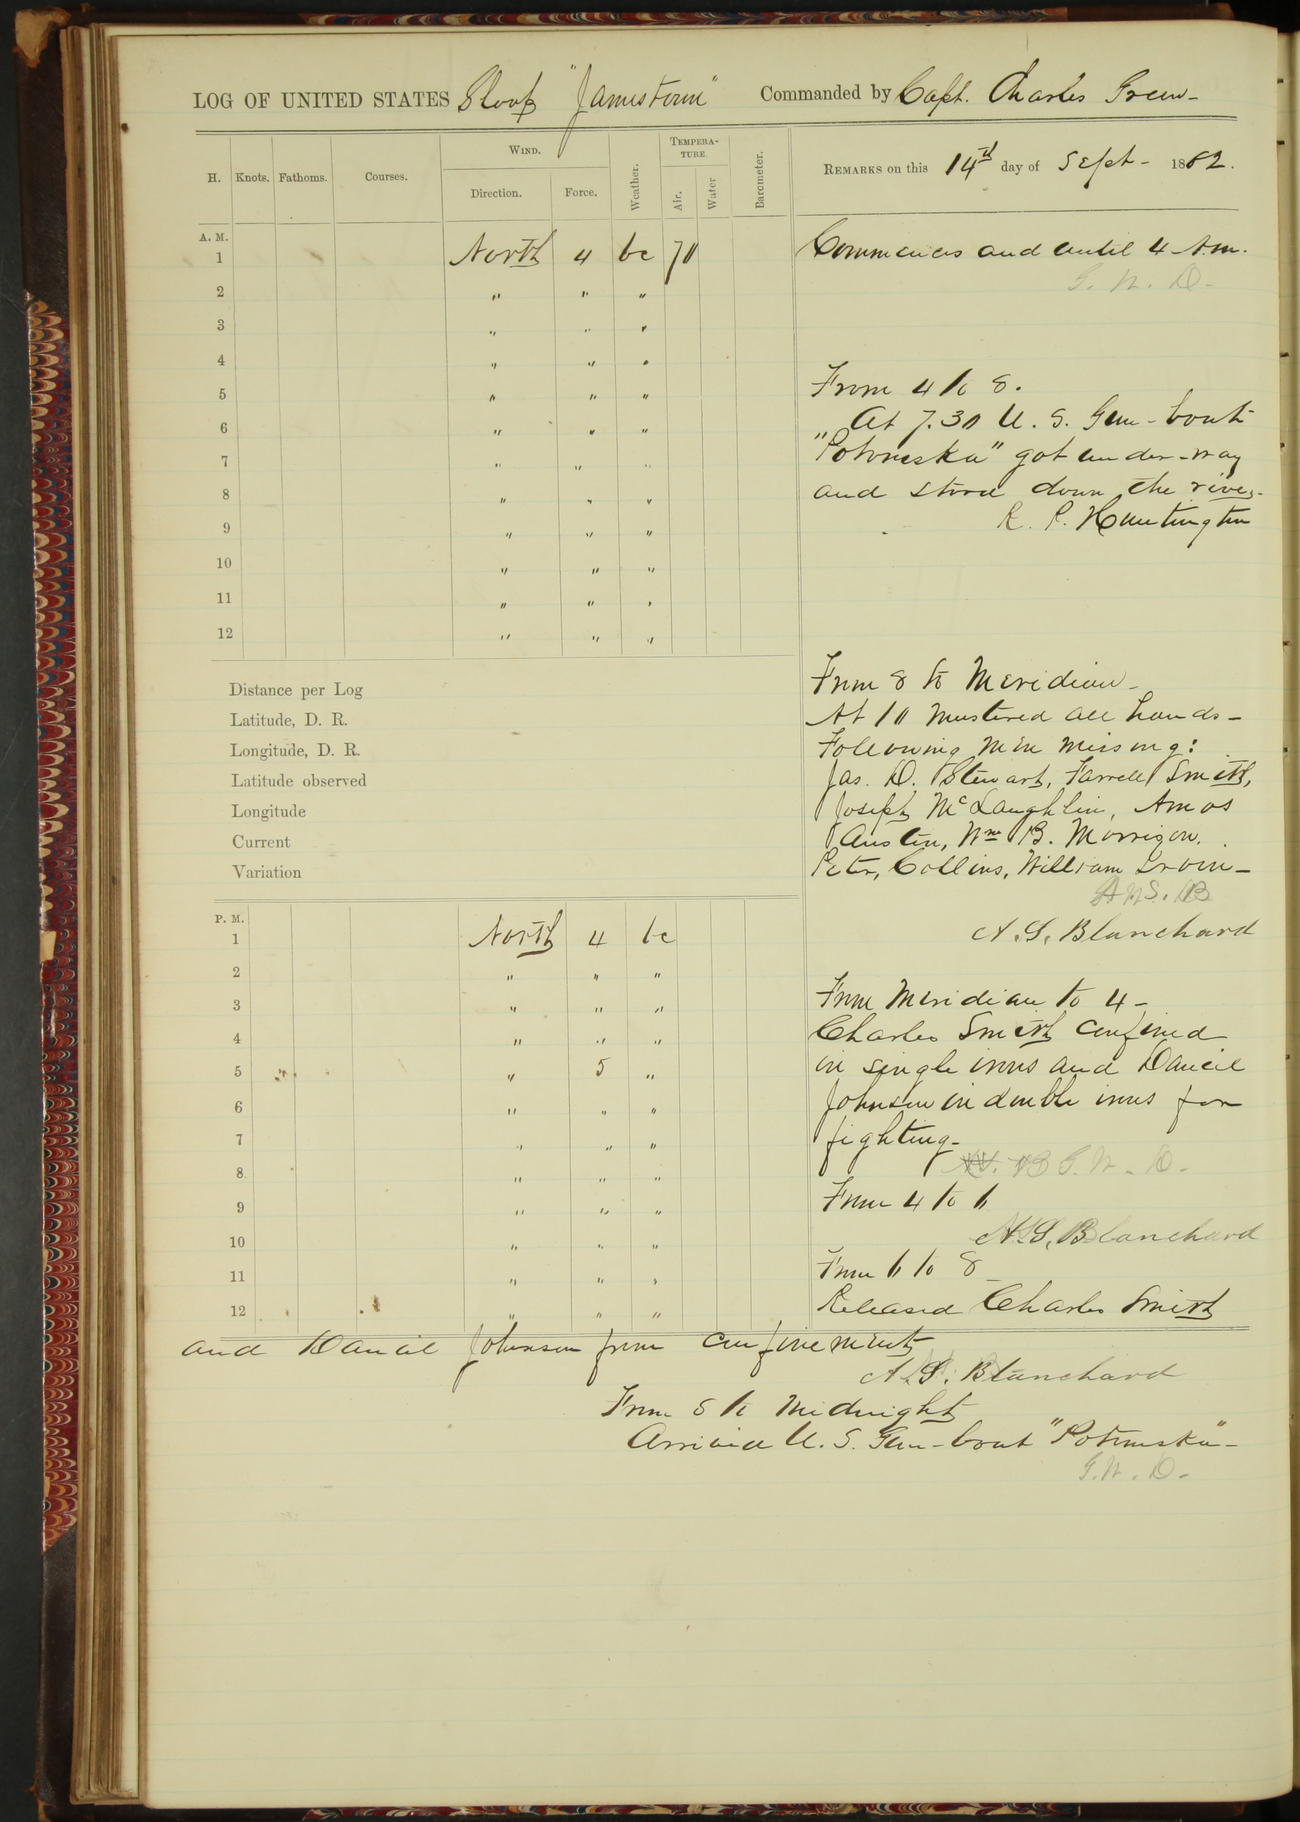 LOG OF UNITED STATES Sloop "Jamestown" Commanded by Capt. Charles Green-
H. Knots. Fathoms. Courses. WIND. Direction. Force. Weather. TEMPERA-TURE. Air. Water Barometer. REMARKS on this 14th day of Sept- 1862.
A. M.
1 North 4 bc 70 Commences and until 4 A.m.
G. W. D.
2 " " "
3 " " "
4 " " "
5 " " "
6 " " "
7 " " "
8 " " "
9 " " "
10 " " "
11 " " "
12 " " "
From 4 to 8.
At 7.30 U. S. Gun-boat
"Potomska" got under-way
and stood down the river.
R. P. Huntington
Distance per Log
Latitude, D. R.
Longitude, D. R.
Latitude observed
Longitude
Current
Variation
From 8 to Meridian-
At 10 mustered all hands-
Following men missing:
Jas. D. Stewart, Farrell Smith,
Joseph McLaughlin, Amos
Austin, Wm B. Morrison.
Peter, Collins, William Irvin-
A. S. B
A. S. Blanchard
P. M.
1 North 4 bc
2 " " "
3 " " "
4 " " "
5 " 5 "
6 " " "
7 " " "
8 " " "
9 " " "
10 " " "
11 " " "
12 " " "
From Meridian to 4-
Charles Smith confined
in single irons and Daniel
Johnson in double irons for
fighting-
G. W. D.
From 4 to 6
A. S. Blanchard
From 6 to 8
Released Charles Smith
and Daniel Johnson from confinement
A. S. Blanchard
From 8 to Midnight
Arrived U. S. Gun-boat "Potomska"-
G. W. D.